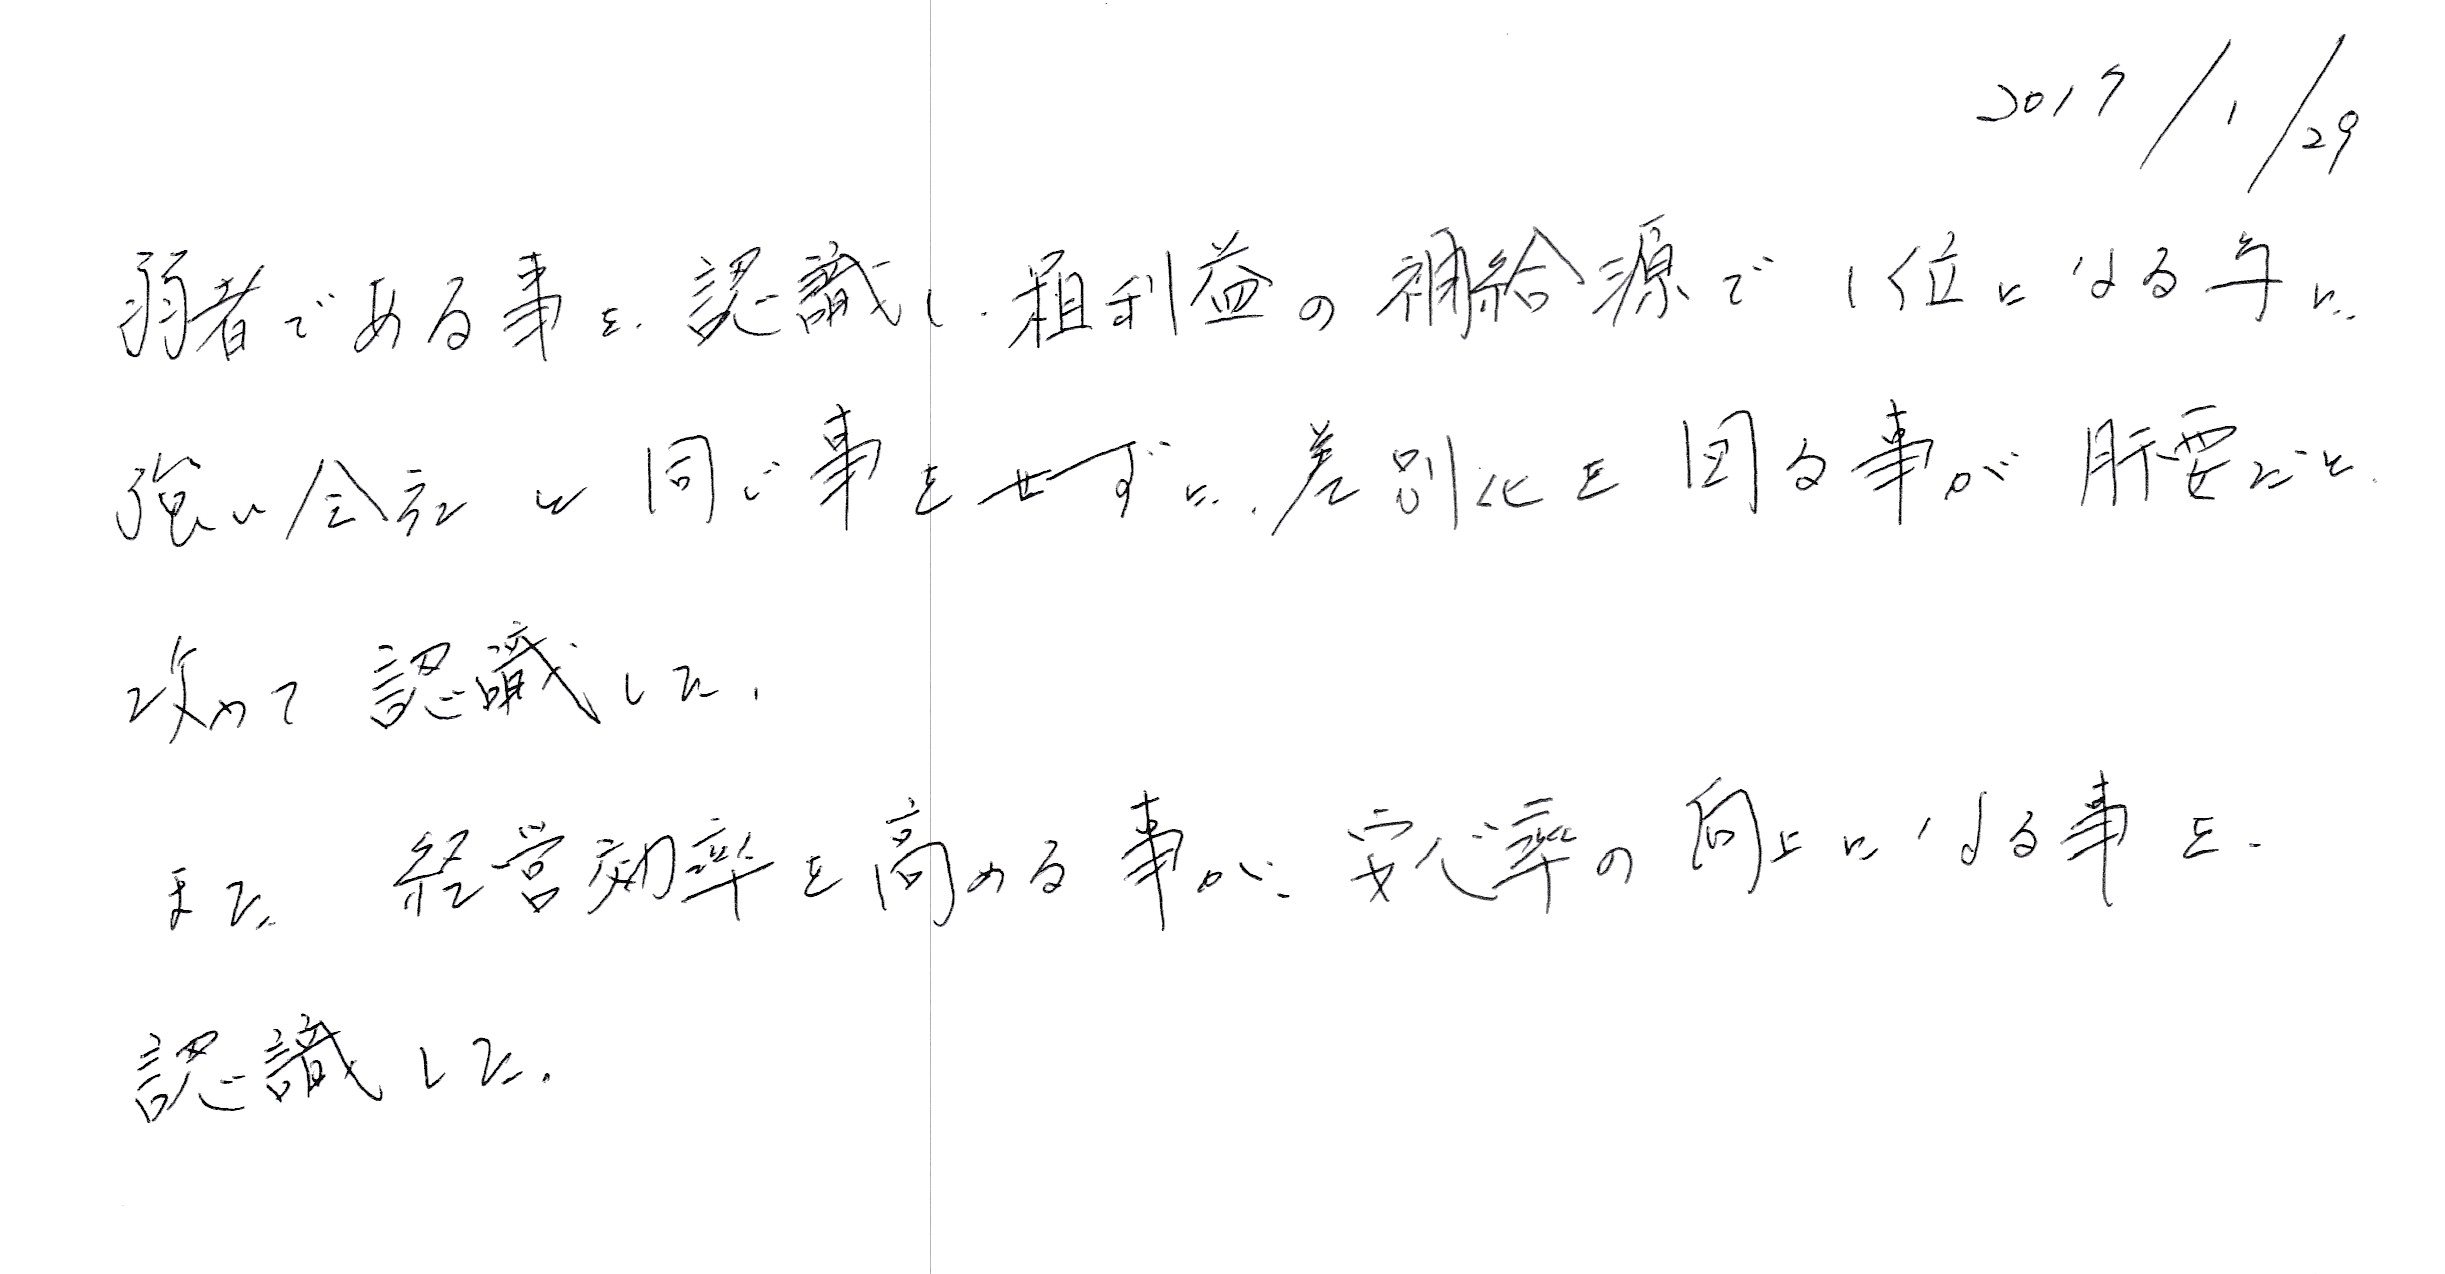 2017/1/29
弱者である事を、認識し、粗利益の補給源で1位になる年に、
強い会社と同じ事をせずに、差別化を図る事が肝要だと、
改めて認識した。
また、経営効率を高める事が、安心率の向上になる事を、
認識した。